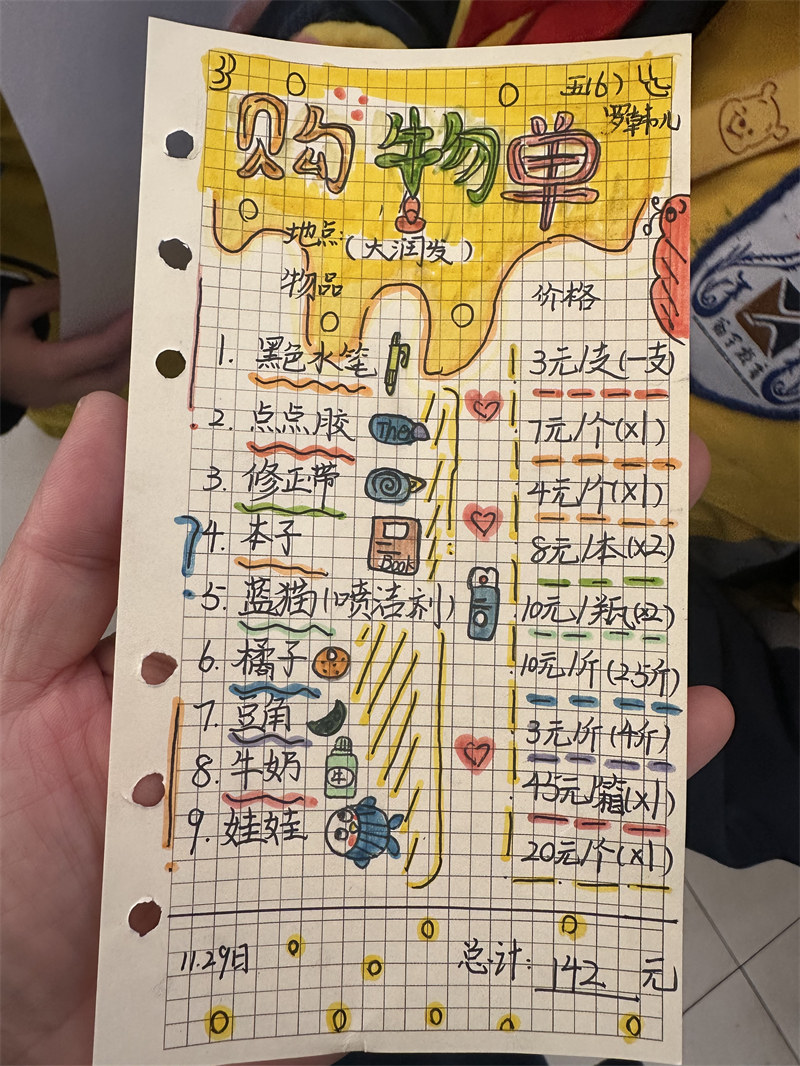 3
五(6)
罗韩儿
购物单
地点:(大润发)
物品 价格
1. 黑色水笔 3元/支(一支)
2. 点点胶 The 7元/个(x1)
3. 修正带 4元/个(x1)
4. 本子 Book 8元/本(x2)
5. 蓝猫(喷洁剂) 10元/瓶(x2)
6. 橘子 10元/斤(2.5斤)
7. 豆角 3元/斤(4斤)
8. 牛奶 牛 45元/箱(x1)
9. 娃娃 20元/个(x1)
11.29日 总计: 142 元